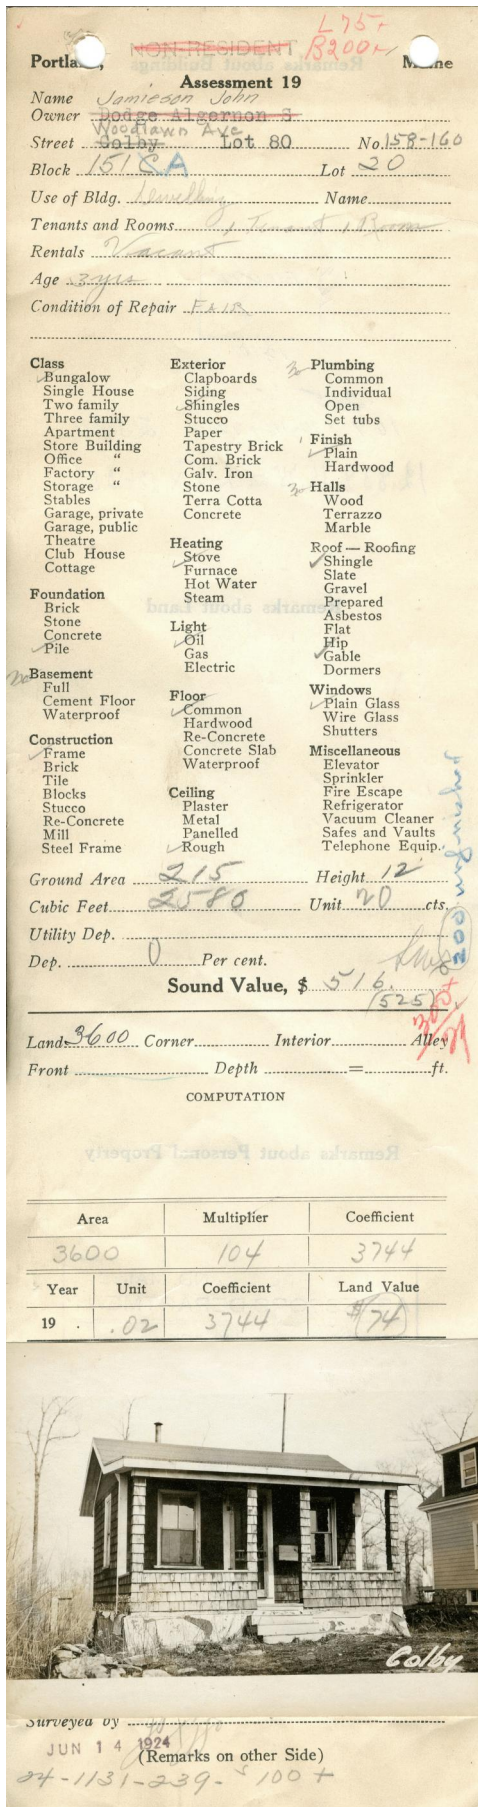 L 75+
NON-RESIDENT B200+
Portland, Maine
Assessment 19
Name Jamieson John
Owner Dodge Algernon S
Woodlawn Ave
Street Colby Lot 80 No. 158-160
Block 151 A Lot 20
Use of Bldg. Dwelling Name
Tenants and Rooms 1 Tenant 1 Room
Rentals Vacant
Age 3 yrs
Condition of Repair FAIR
Class
Bungalow
Single House
Two family
Three family
Apartment
Store Building
Office "
Factory "
Storage "
Stables
Garage, private
Garage, public
Theatre
Club House
Cottage
Foundation
Brick
Stone
Concrete
Pile
no Basement
Full
Cement Floor
Waterproof
Construction
Frame
Brick
Tile
Blocks
Stucco
Re-Concrete
Mill
Steel Frame
Exterior
Clapboards
Siding
Shingles
Stucco
Paper
Tapestry Brick
Com. Brick
Galv. Iron
Stone
Terra Cotta
Concrete
Heating
Stove
Furnace
Hot Water
Steam
Light
Oil
Gas
Electric
Floor
Common
Hardwood
Re-Concrete
Concrete Slab
Waterproof
Ceiling
Plaster
Metal
Panelled
Rough
no Plumbing
Common
Individual
Open
Set tubs
Finish
Plain
Hardwood
no Halls
Wood
Terrazzo
Marble
Roof — Roofing
Shingle
Slate
Gravel
Prepared
Asbestos
Flat
Hip
Gable
Dormers
Windows
Plain Glass
Wire Glass
Shutters
Miscellaneous
Elevator
Sprinkler
Fire Escape
Refrigerator
Vacuum Cleaner
Safes and Vaults
Telephone Equip.
200
Ground Area 215 Height 12
Cubic Feet 2580 Unit 20 cts.
Utility Dep.
Dep. 0 Per cent.
Sound Value, $ 516.
(525)
Land 3600 Corner Interior Alley
Front Depth = ft.
COMPUTATION
Remarks about Personal Property
Area Multiplier Coefficient
3600 104 3744
Year Unit Coefficient Land Value
19 . .02 3744 $74
Colby
Surveyed by
JUN 14 1924
(Remarks on other Side)
24-1131-239- $100+